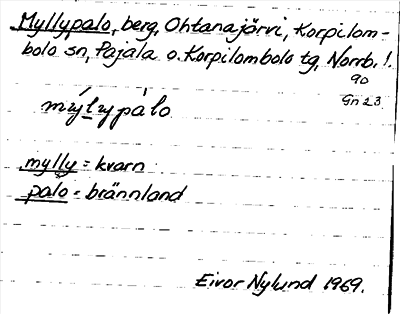 Myllypalo, berg, Ohtanajärvi, Korpilom-
bolo sn, Pajala o. Korpilombolo tg, Norrb. l.
90
Gn 23
mýlypàlo
mylly = kvarn
palo = brännland
Eivor Nylund 1969.